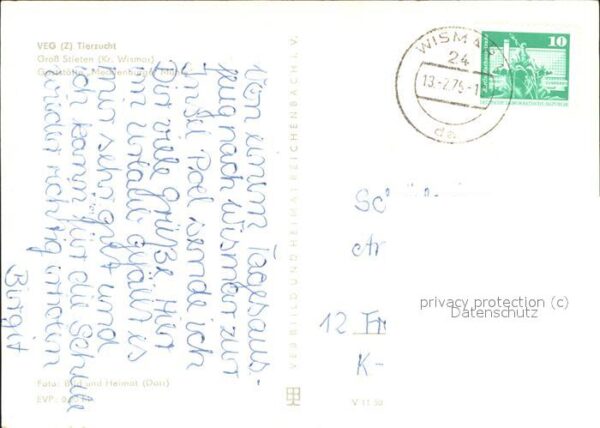 VEG (Z) Tierzucht
Groß Stieten (Kr. Wismar)
Gaststätte „Mecklenburger
Von einem Tagesaus-
flug nach Wismar zur
Insel Poel sende ich
Dir viele Grüße. Hier
im Urlaub gefällt es
mir sehr gut und
ich kann für die Schule
wieder richtig
Birgit
Foto: Bild und Heimat (Darr)
EVP:
VEB BILD UND HEIMAT REICHENBACH I. V.
V 11 50
WISMAR
24
13.-7.75-1
da
10
DEUTSCHE DEMOKRATISCHE REPUBLIK
Sc
Ar
12 Fr
K-
privacy protection (c)
Datenschutz